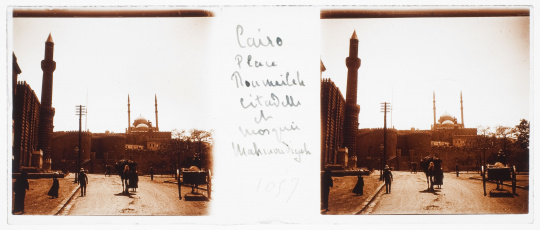 Cairo
Place
Roumeileh
citadelle
et
mosquée
Mahmoudiyeh
1057